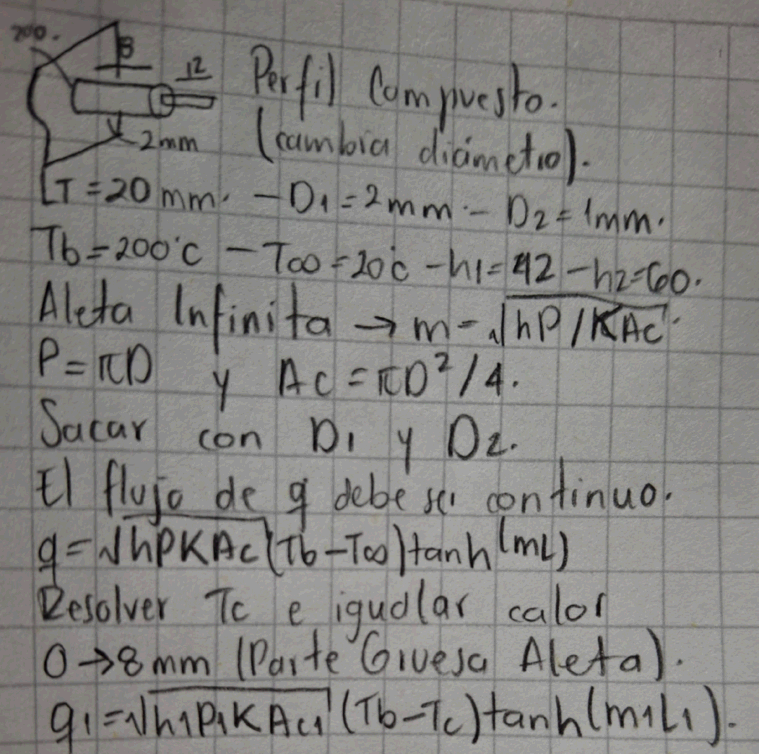 200.
8
12
2mm
Perfil Compuesto.
(cambia diámetro).
LT=20mm. - D1=2mm.- D2=1mm.
Tb=200°C - T∞=20°C - h1=42 - h2=60.
Aleta Infinita → m=√hP/KAc.
P=πD y Ac=πD²/4.
Sacar con D1 y D2.
El flujo de q debe ser continuo.
q=√hPKAc(Tb-T∞)tanh(mL)
Resolver Tc e igualar calor
0→8mm (Parte Gruesa Aleta).
q1=√h1P1KAc1(Tb-Tc)tanh(m1L1).